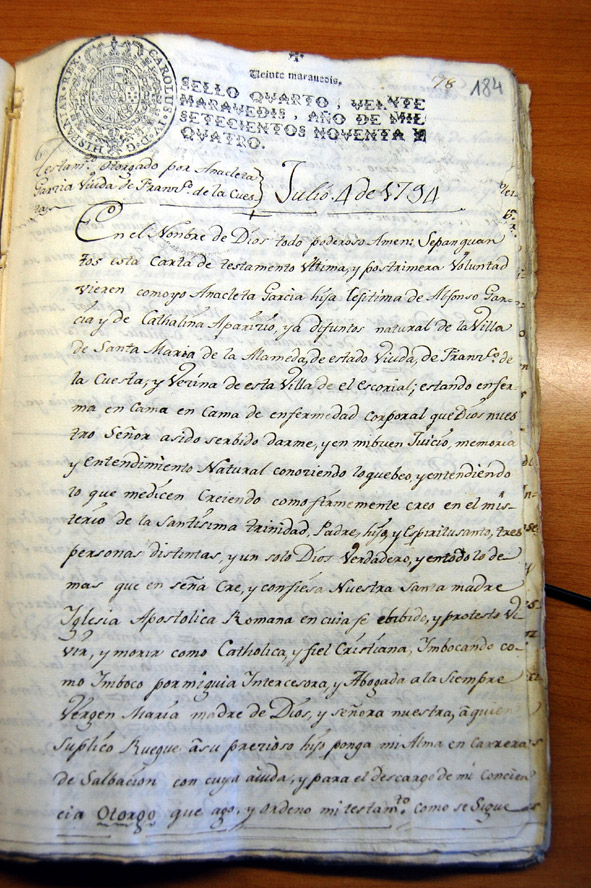 Veinte maravedis.
78 184
CAROLUS IV D G HISPANIAR REX
SELLO QVARTO, VEINTE
MARAVEDIS, AÑO DE MIL
SETECIENTOS NOVENTA Y
QVATRO.
Testamto. Otorgado por Anacleta
Garcia Viuda de Franco. de la Cues
ta
Julio. 4 de 1794
En el Nonbre de Dios todo poderoso Amen: Sepan quan
tos esta Carta de testamento Ultima, y postrimera Voluntad
vieren como yo Anacleta Garcia hija lesitima de Alfonso Gar-
cia y de Cathalina Aparizio, ya difuntos natural de la Villa
de Santa Maria de la Alameda, de estado Viuda, de Franco. de
la Cuesta; y Vezina de esta Villa, de el escorial; estando enfer-
ma en Cama en Cama de enfermedad corporal que Dios nues
tro Señor a sido serbido darme, y en mi buen Juicio, memoria
y entendimiento Natural conoziendo lo que beo, y entendiendo
lo que me dicen Creiendo como firmemente creo en el mis-
terio de la Santisima trinidad, Padre, hijo, y Espiritu santo, tres
personas distintas, y un solo Dios Verdadero, y en todo lo de
mas que en seña Cre, y confiesa Nuestra Santa madre
Iglesia Apostolica Romana en cuia fe e bibido, y protesto Vi
vir, y morir como Catholica, y fiel Cristiana, Imbocando co-
mo Imboco por mi guia Intercesora, y Abogada a la Siempre
Vergen Maria madre de Dios, y señora nuestra, a quien
suplico Ruegue a su prezioso hijo ponga mi Alma en Carrera
de Salbacion con cuya aiuda, y para el descargo de mi Concien
cia Otorgo que ago, y ordeno mi testamto. como se sigue